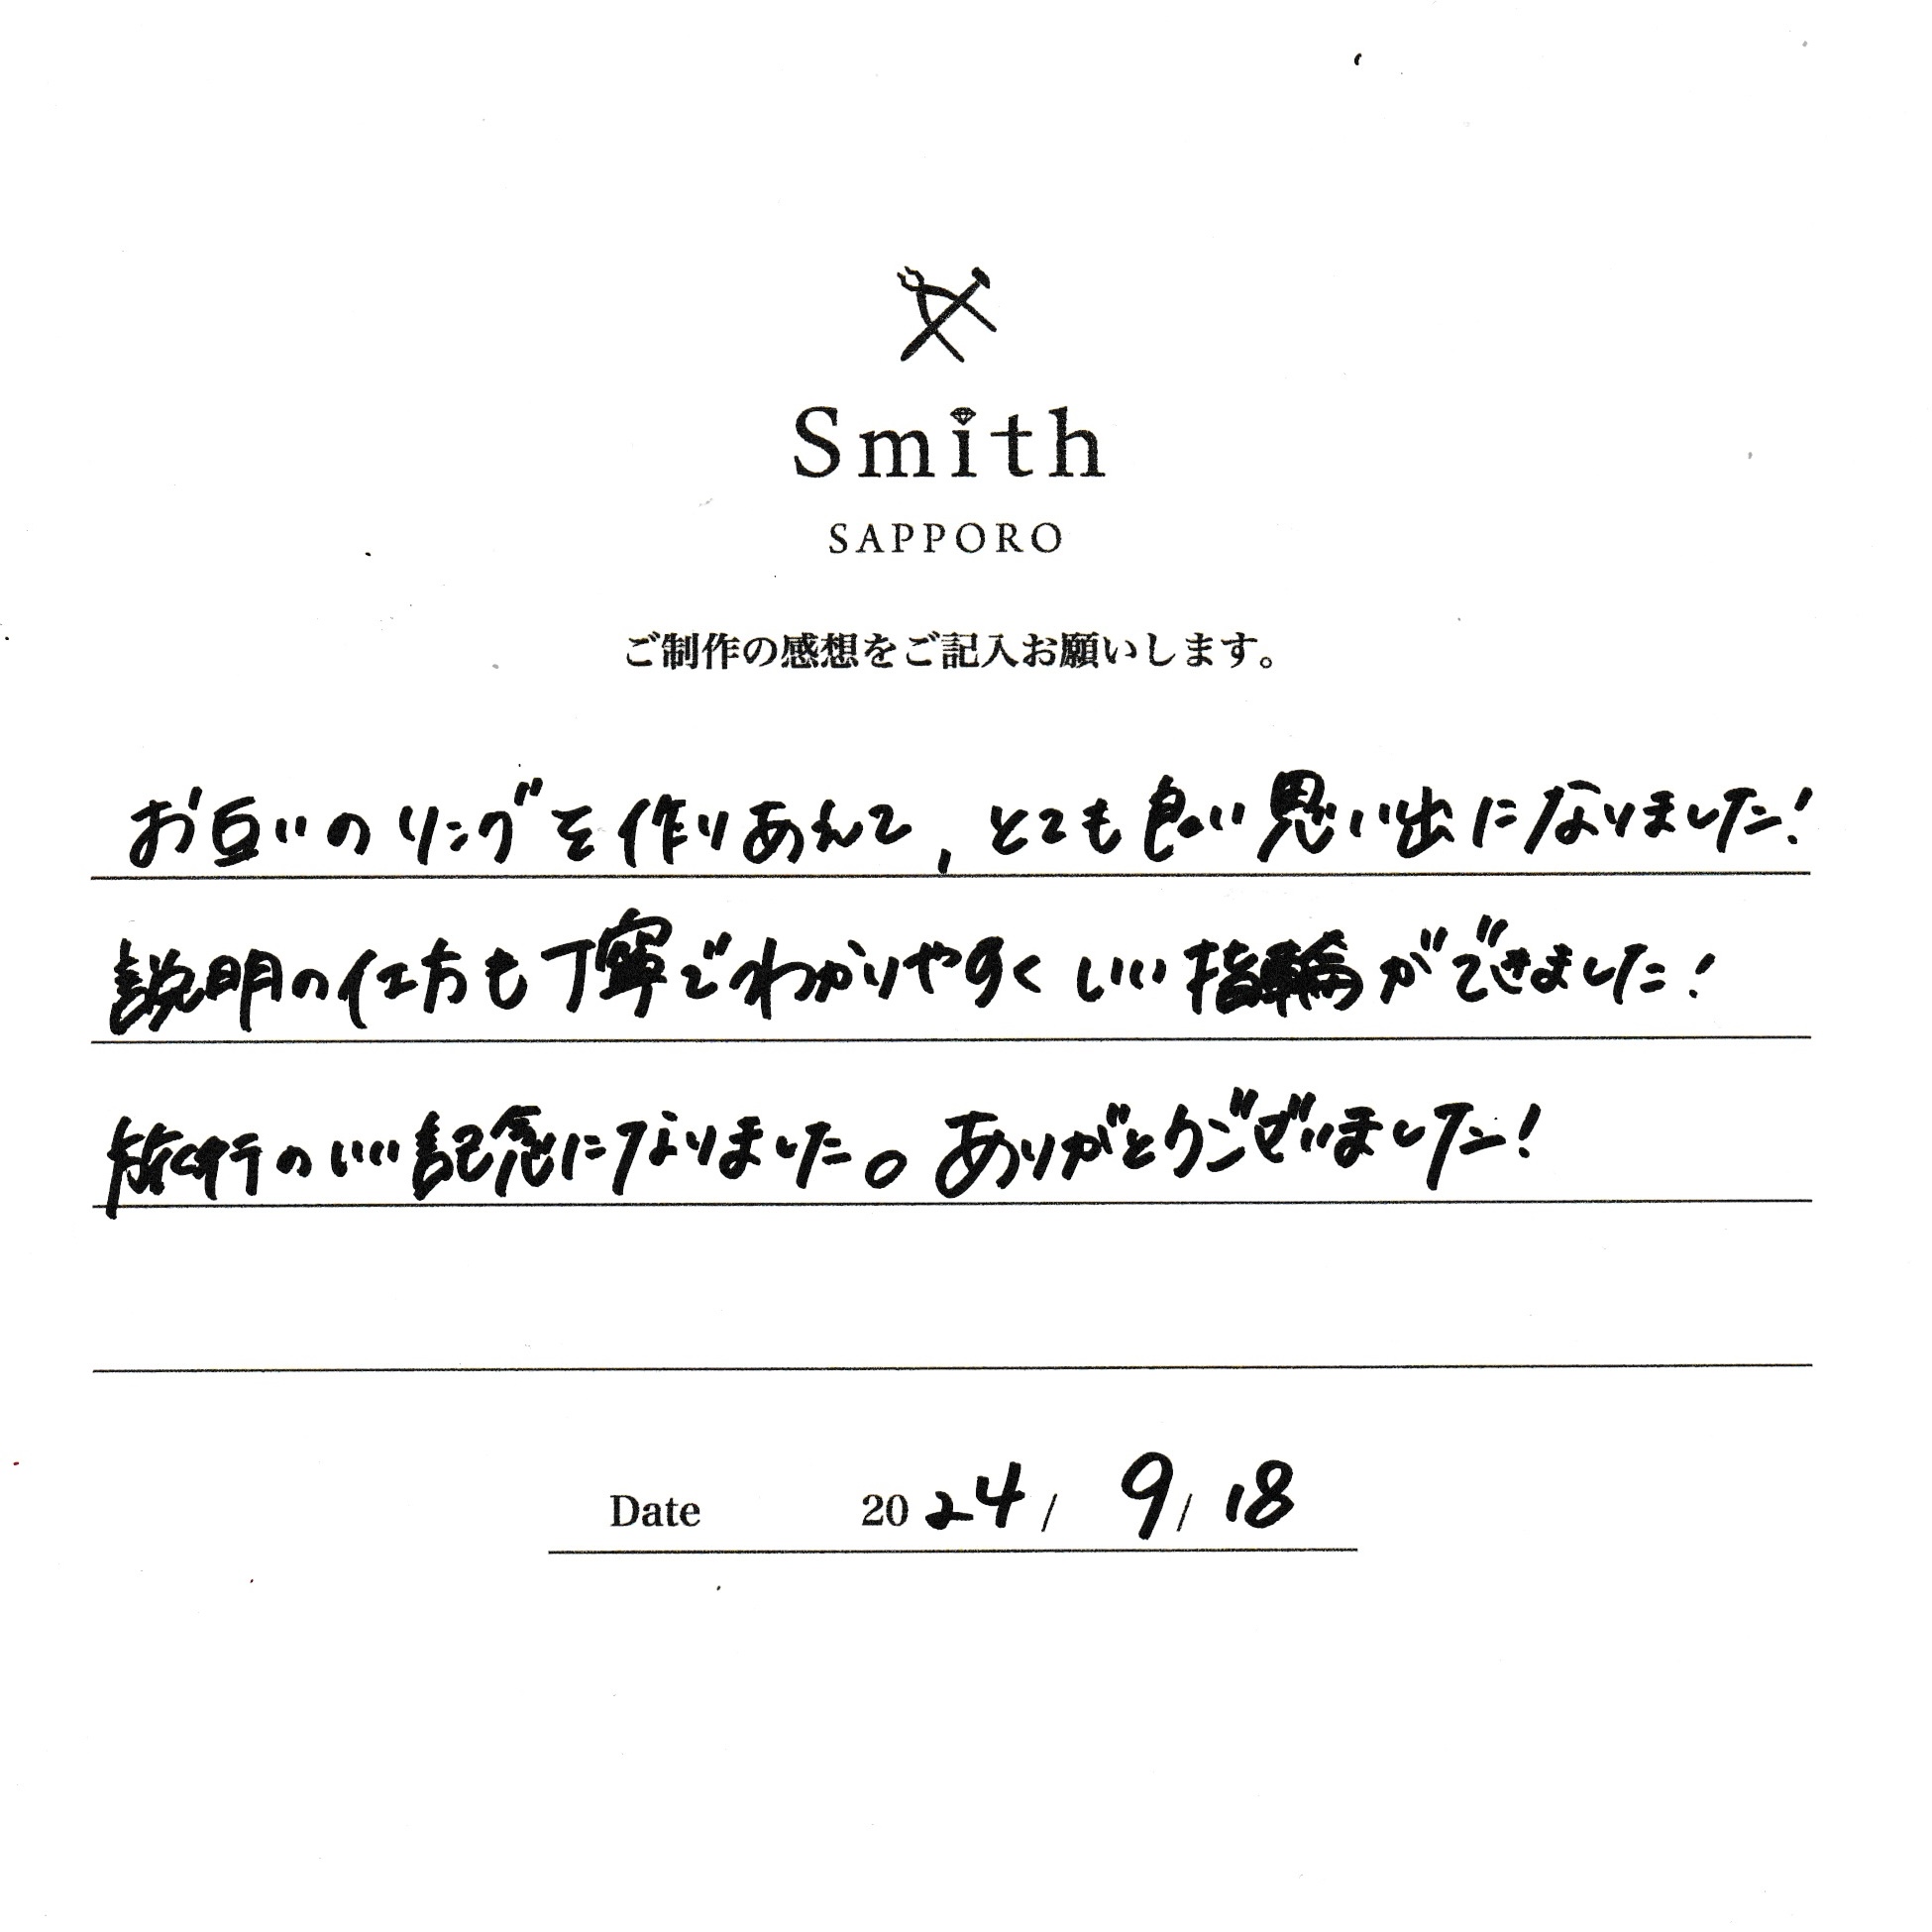 Smith
SAPPORO
ご制作の感想をご記入お願いします。
お互いのリングを作りあえて、とても良い思い出になりました!
説明の仕方も丁寧でわかりやすくいい指輪ができました!
旅行のいい記念になりました。ありがとうございました!
Date 2024/ 9/ 18